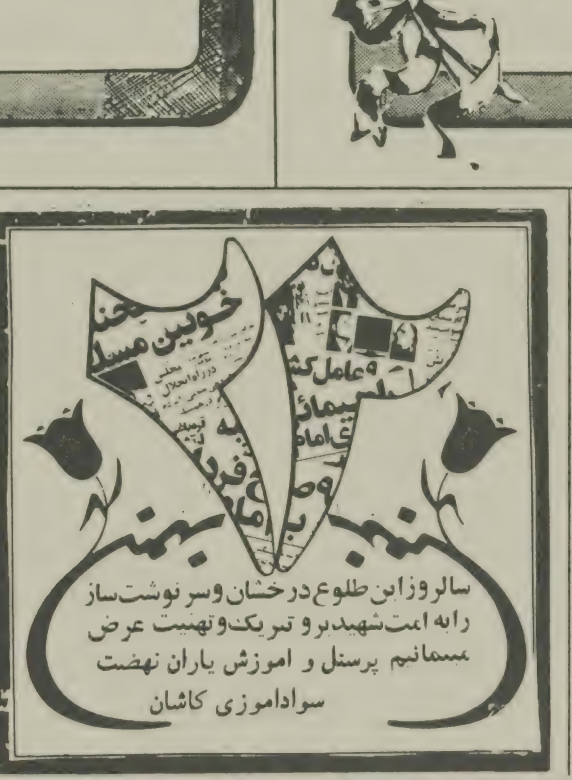 ۲۲
خونین
مجلس
در راه انحلال
عامل
امام
بهمن
سالروز این طلوع درخشان و سرنوشت‌ساز
رابه امت شهیدپرو تبریک و تهنیت عرض
مینمائیم پرسنل و اموزش یاران نهضت
سواداموزی کاشان